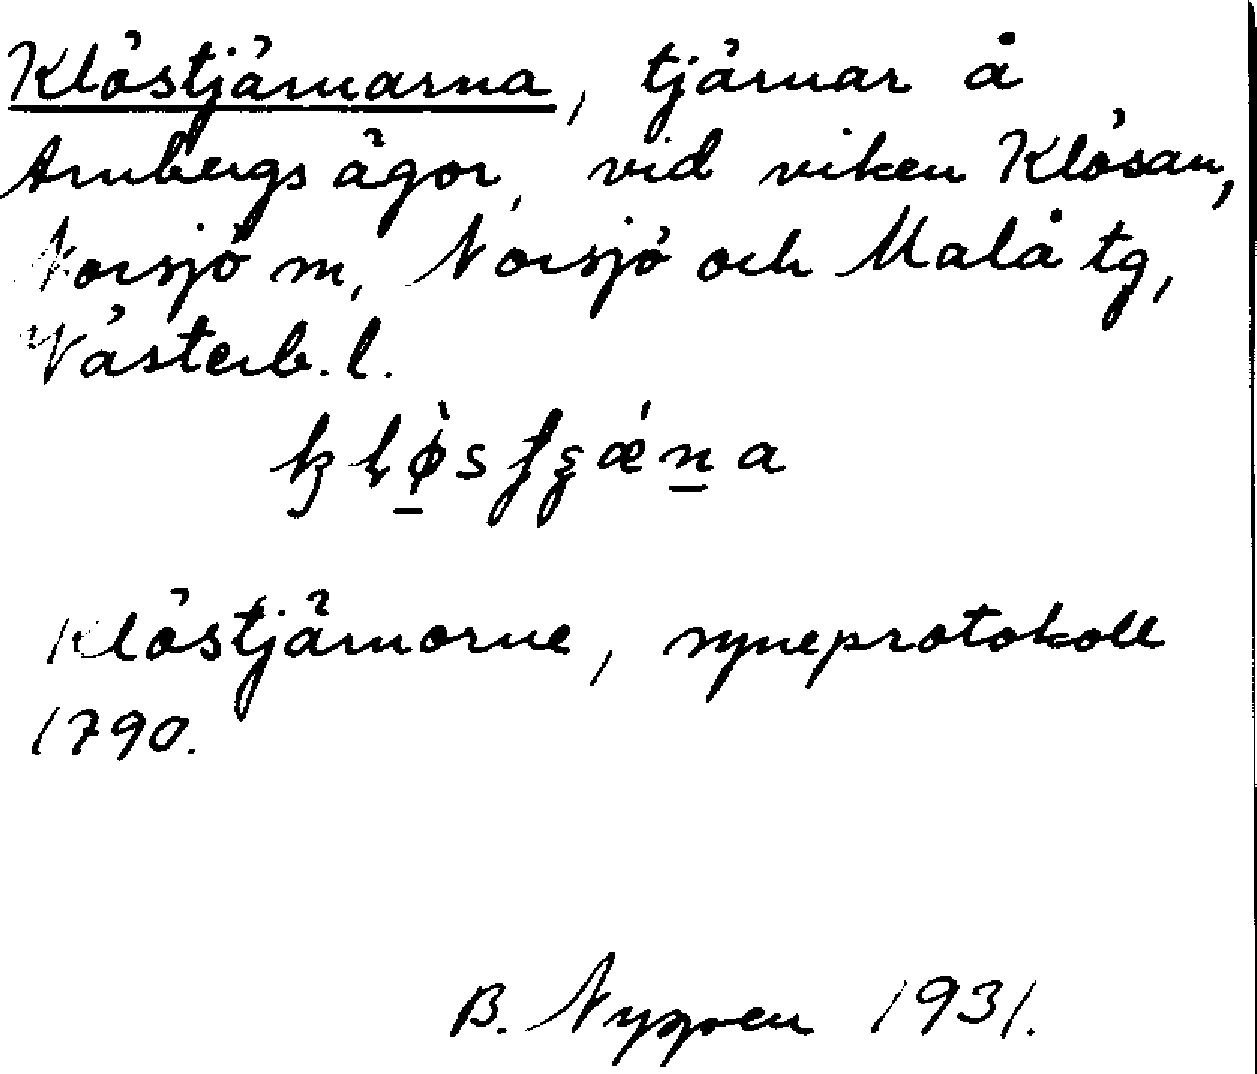 Klöstjärnarna, tjärnar å
Arnbergs ägor, vid viken Klösan,
Norsjö sn, Norsjö och Malå tg,
Västerb. l.

Klöstjärnorne, syneprotokoll
1790.
B. Nygren 1931.